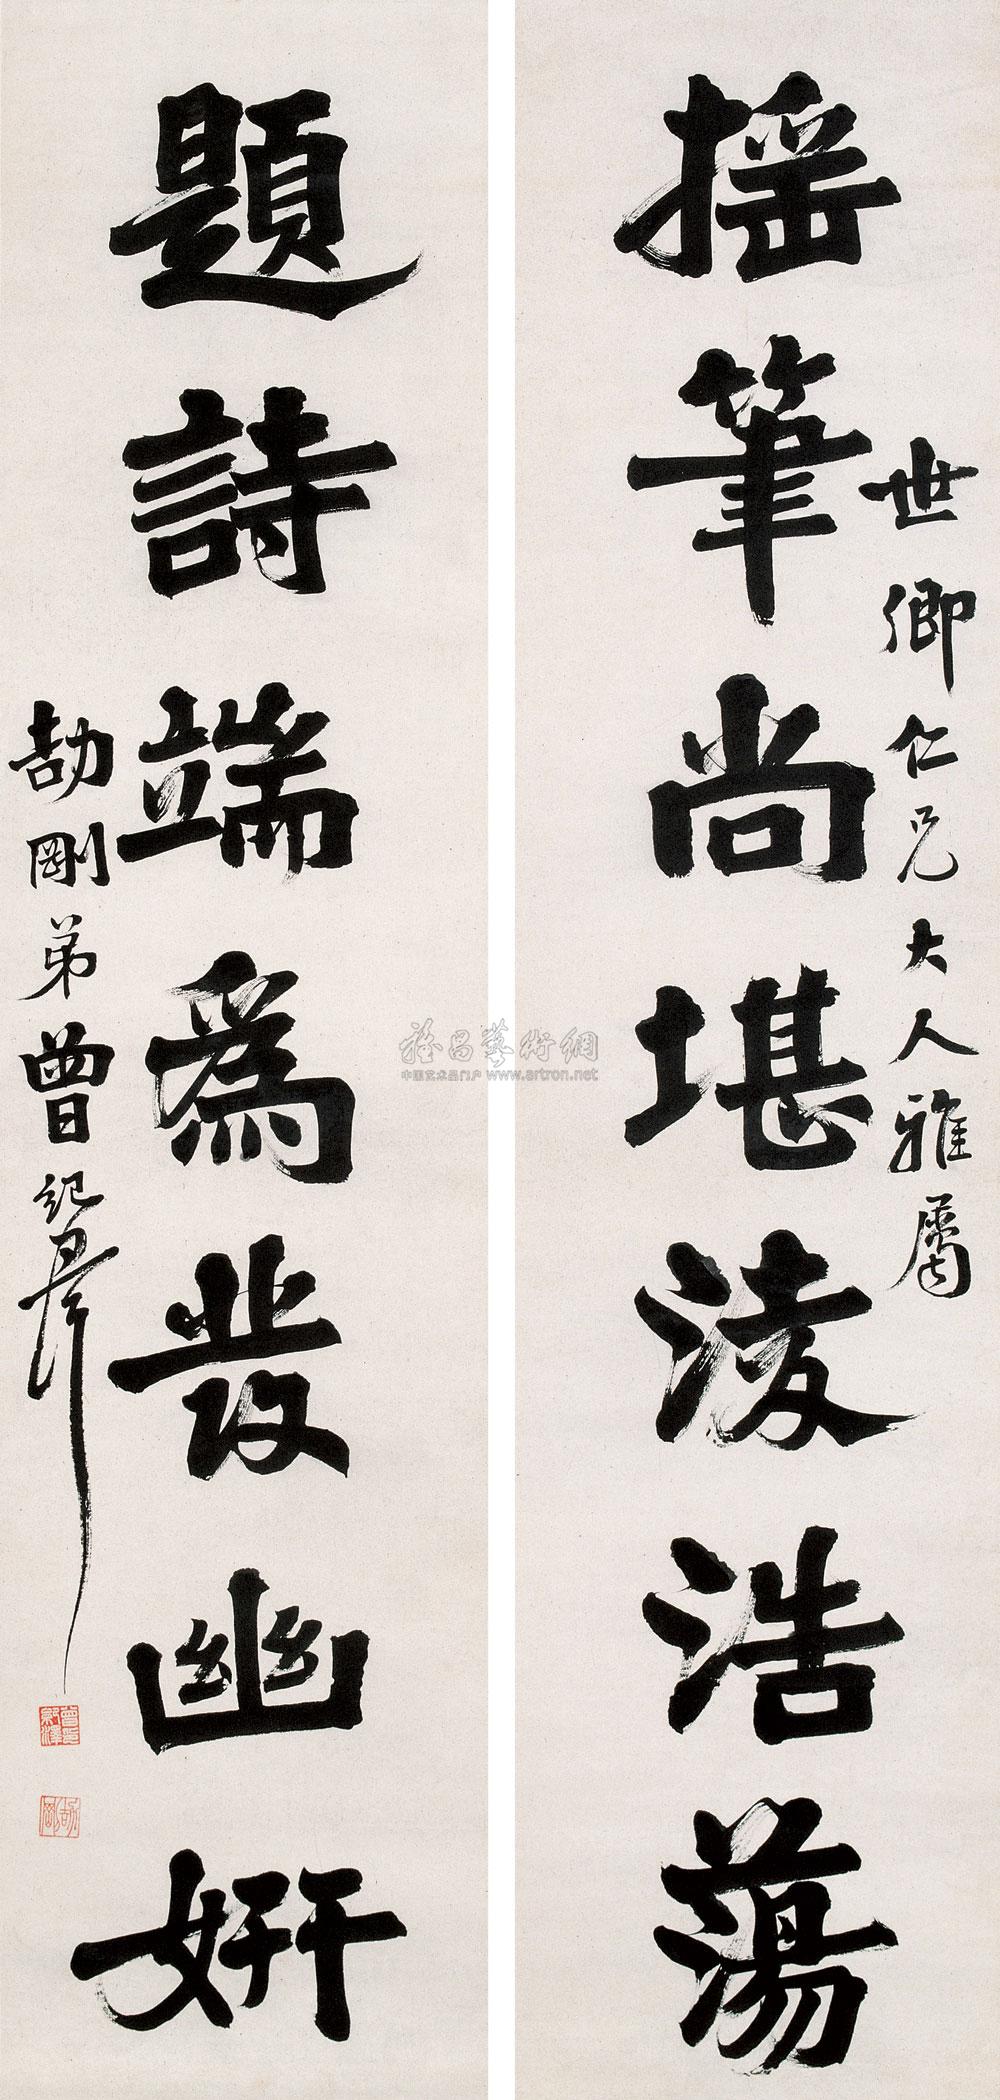 世卿仁兄大人雅屬
揺筆尚堪淩浩蕩
題詩端為發幽妍
劼剛弟曾紀澤
曾紀澤印
劼剛
雅昌藝術網
中国艺术品门户 www.artron.net